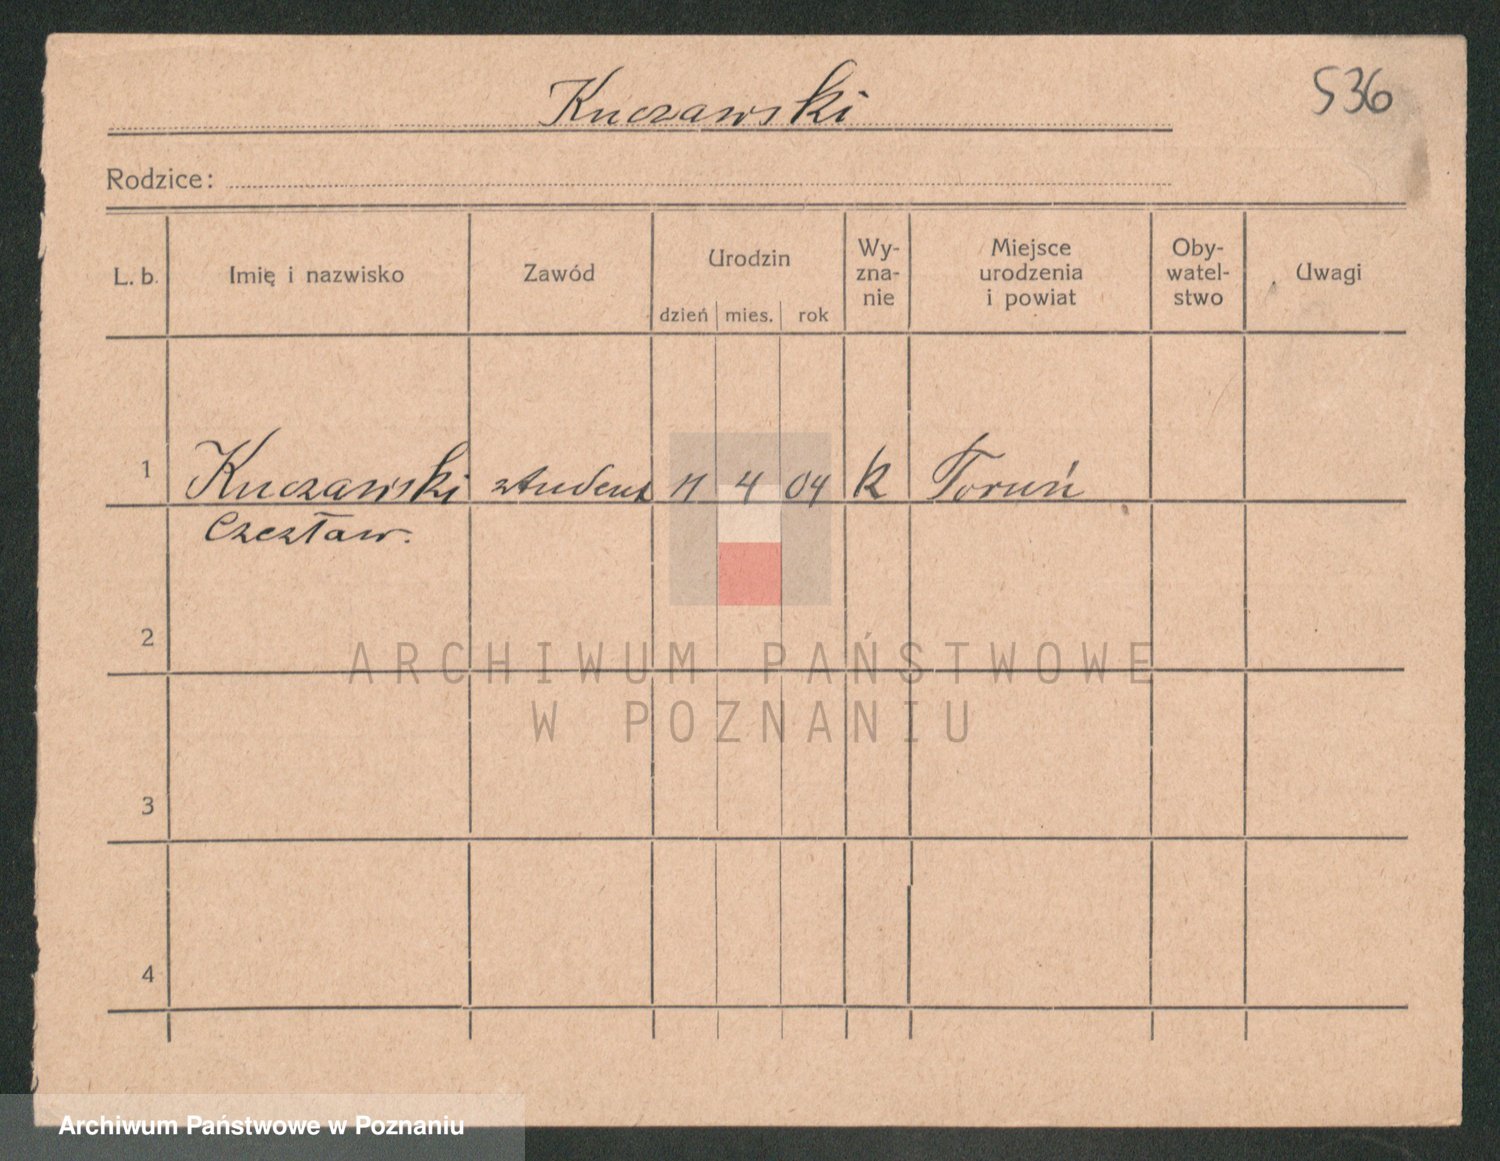 Kuczawski
536
Rodzice:
L. b.
Imię i nazwisko
Zawód
Urodzin
dzień
mies.
rok
Wy-
zna-
nie
Miejsce
urodzenia
i powiat
Oby-
watel-
stwo
Uwagi
1
Kuczawski student 11 4 04 k Toruń
Czesław.
2
3
4
ARCHIWUM PAŃSTWOWE
W POZNANIU
Archiwum Państwowe w Poznaniu